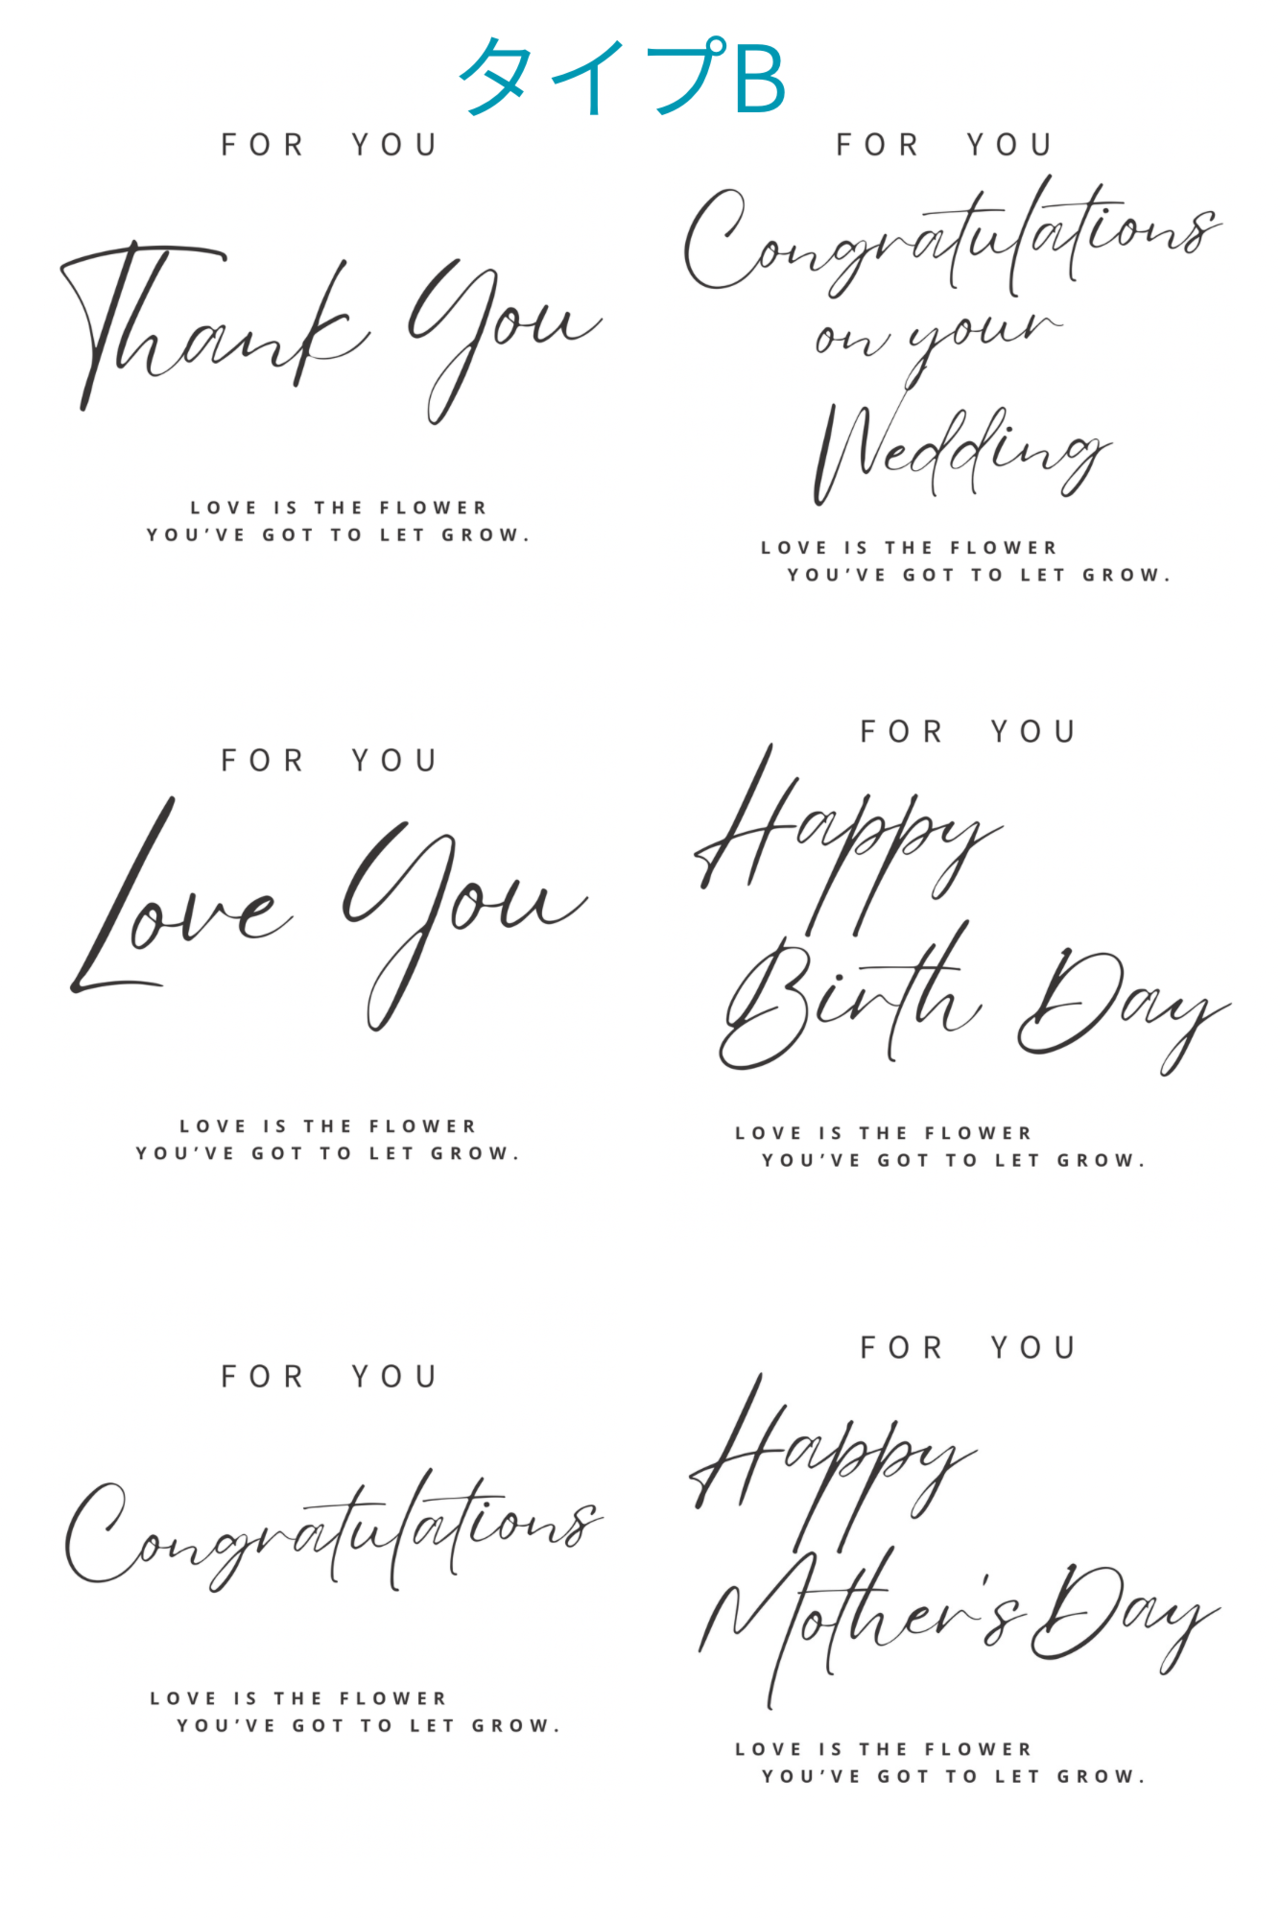 タイプB
FOR YOU
Thank You
LOVE IS THE FLOWER
YOU'VE GOT TO LET GROW.
FOR YOU
Congratulations
on your
Wedding
LOVE IS THE FLOWER
YOU'VE GOT TO LET GROW.
FOR YOU
Love You
LOVE IS THE FLOWER
YOU'VE GOT TO LET GROW.
FOR YOU
Happy
Birth Day
LOVE IS THE FLOWER
YOU'VE GOT TO LET GROW.
FOR YOU
Congratulations
LOVE IS THE FLOWER
YOU'VE GOT TO LET GROW.
FOR YOU
Happy
Mother's Day
LOVE IS THE FLOWER
YOU'VE GOT TO LET GROW.